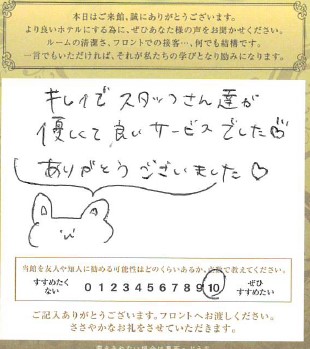 本日はご来館、誠にありがとうございます。
より良いホテルにする為に、ぜひあなた様の声をお聞かせください。
ルームの清潔さ、フロントでの接客…、何でも結構です。
一言でもいただければ、それが私たちの学びとなり励みになります。
キレイで スタッフさん達が
優しくて良いサービスでした
ありがとうございました♡
当館を友人や知人に勧める可能性はどのくらいあるか、点数で教えてください。
すすめたくない 0 1 2 3 4 5 6 7 8 9 10 ぜひすすめたい
ご記入ありがとうございます。フロントへお渡しください。
ささやかなお礼をさせていただきます。